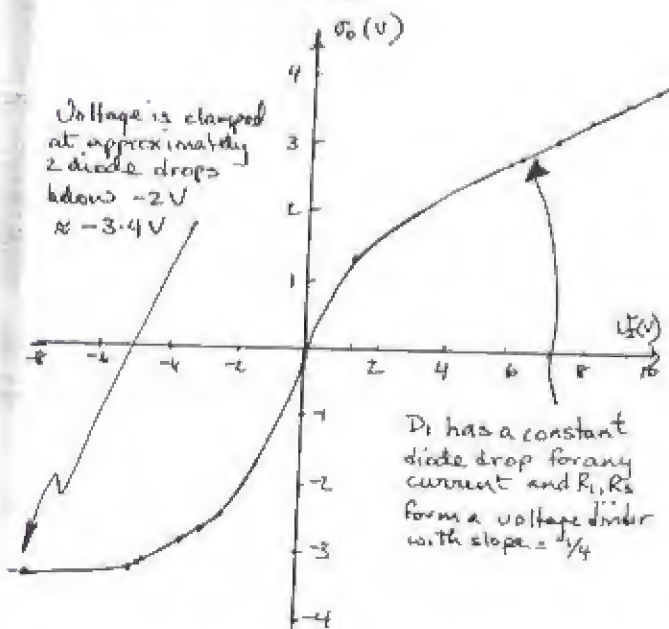 υo (V)
4
3
2
1
Voltage is clamped
at approximately
2 diode drops
below -2 V
≈ -3.4 V
-8 -6 -4 -2 2 4 6 8 10
υI (V)
-1
-2
-3
-4
D1 has a constant
diode drop for any
current and R1, R3
form a voltage divider
with slope = 1/4